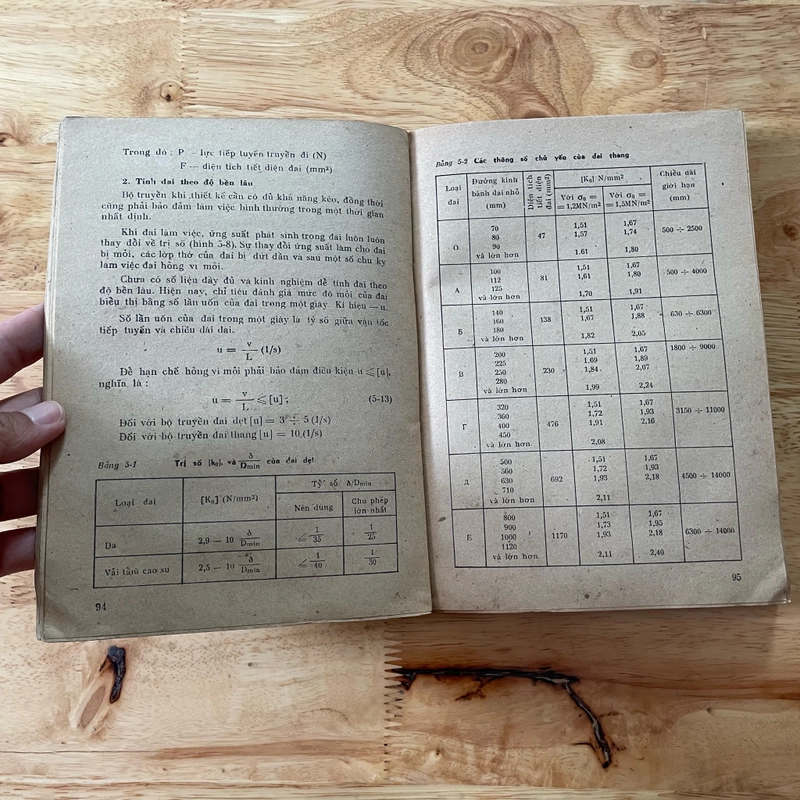 Trong đó : P — lực tiếp tuyến truyền đi (N)
F — diệu tích tiết diện đai (mm²)
2. Tính đai theo độ bền lâu
Bộ truyền khi thiết kế cần có đủ khả năng kéo, đồng thời
cũng phải bảo đảm làm việc bình thường trong một thời gian
nhất định.
Khi đai làm việc, ứng suất phát sinh trong đai luôn luôn
thay đổi về trị số (hình 5-8). Sự thay đổi ứng suất làm cho đai
bị mỏi, các lớp thớ của đai bị đứt dần và sau một số chu kỳ
làm việc đai hỏng vì mỏi.
Chưa có số liệu đầy đủ và kinh nghiệm để tính đai theo
độ bền lâu. Hiện nay, chỉ tiêu đánh giá mức độ mỏi của đai
biểu thị bằng số lần uốn của đai trong một giây. Kí hiệu — u.
Số lần uốn của đai trong một giây là tỷ số giữa vận tốc
tiếp tuyến và chiều dài đai.
u = v/L (1/s)
Để hạn chế hỏng vì mỏi phải bảo đảm điều kiện u ⩽ [u],
nghĩa là :
u = v/L ⩽ [u] ; (5-13)
Đối với bộ truyền đai dẹt [u] = 3 ÷ 5 (1/s)
Đối với bộ truyền đai thang [u] = 10 (1/s)
Bảng 5-1 Trị số [k₀] và δ/Dmin của đai dẹt
Loại đai [K₀] (N/mm²) Tỷ số δ/Dmin
Nên dùng Cho phép lớn nhất
Da 2,9 — 10 δ/Dmin ⩽ 1/35 1/25
Vải tẩm cao su 2,5 — 10 δ/Dmin ⩽ 1/40 1/30
94
Bảng 5-2 Các thông số chủ yếu của đai thang
Loại đai Đường kính bánh đai nhỏ (mm) Diện tích tiết diện đai (mm²) [K₀] N/mm² Chiều dài giới hạn (mm)
Với σ₀ = = 1,2MN/m² Với σ₀ = = 1,5MN/m²
O 47 500 ÷ 2500
70 1,51 1,67
80 1,57 1,74
90
và lớn hơn 1,61 1,80
A 81 500 ÷ 4000
100 1,51 1,67
112 1,61 1,80
125
và lớn hơn 1,70 1,91
Б 138 630 ÷ 6300
140 1,51 1,67
160 1,67 1,88
180
và lớn hơn 1,82 2,05
B 230 1800 ÷ 9000
200 1,51 1,67
225 1,69 1,89
250 1,84 2,07
280
và lớn hơn 1,99 2,24
Г 476 3150 ÷ 11000
320 1,51 1,67
360 1,72 1,93
400 1,91 2,16
450
và lớn hơn 2,08
Д 692 4500 ÷ 14000
500 1,51 1,67
560 1,72 1,93
630 1,93 2,18
710
và lớn hơn 2,11
E 1170 6300 ÷ 14000
800 1,51 1,67
900 1,73 1,95
1000 1,93 2,18
1120
và lớn hơn 2,11 2,40
95